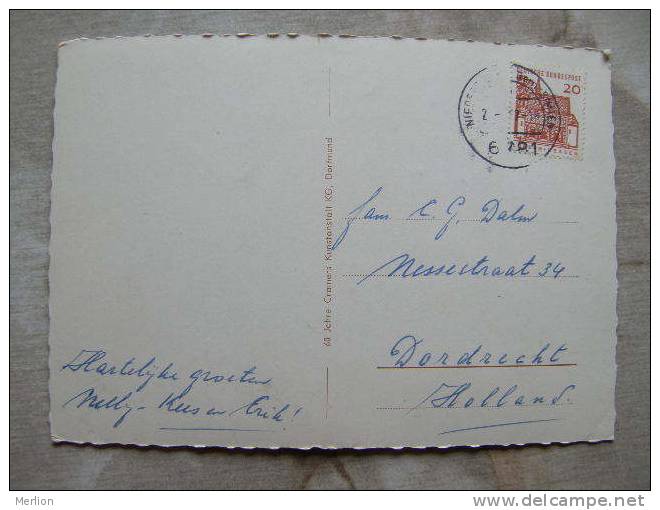 DEUTSCHE BUNDESPOST
20
6781
Fam. C. G. Dalm
Nessestraat 34
Dordrecht
Holland.
60 Jahre Cramers Kunstanstalt KG, Dortmund
Hartelijke groeten
Nelly - Kees en Erik!
Merlion
www.delcampe.net